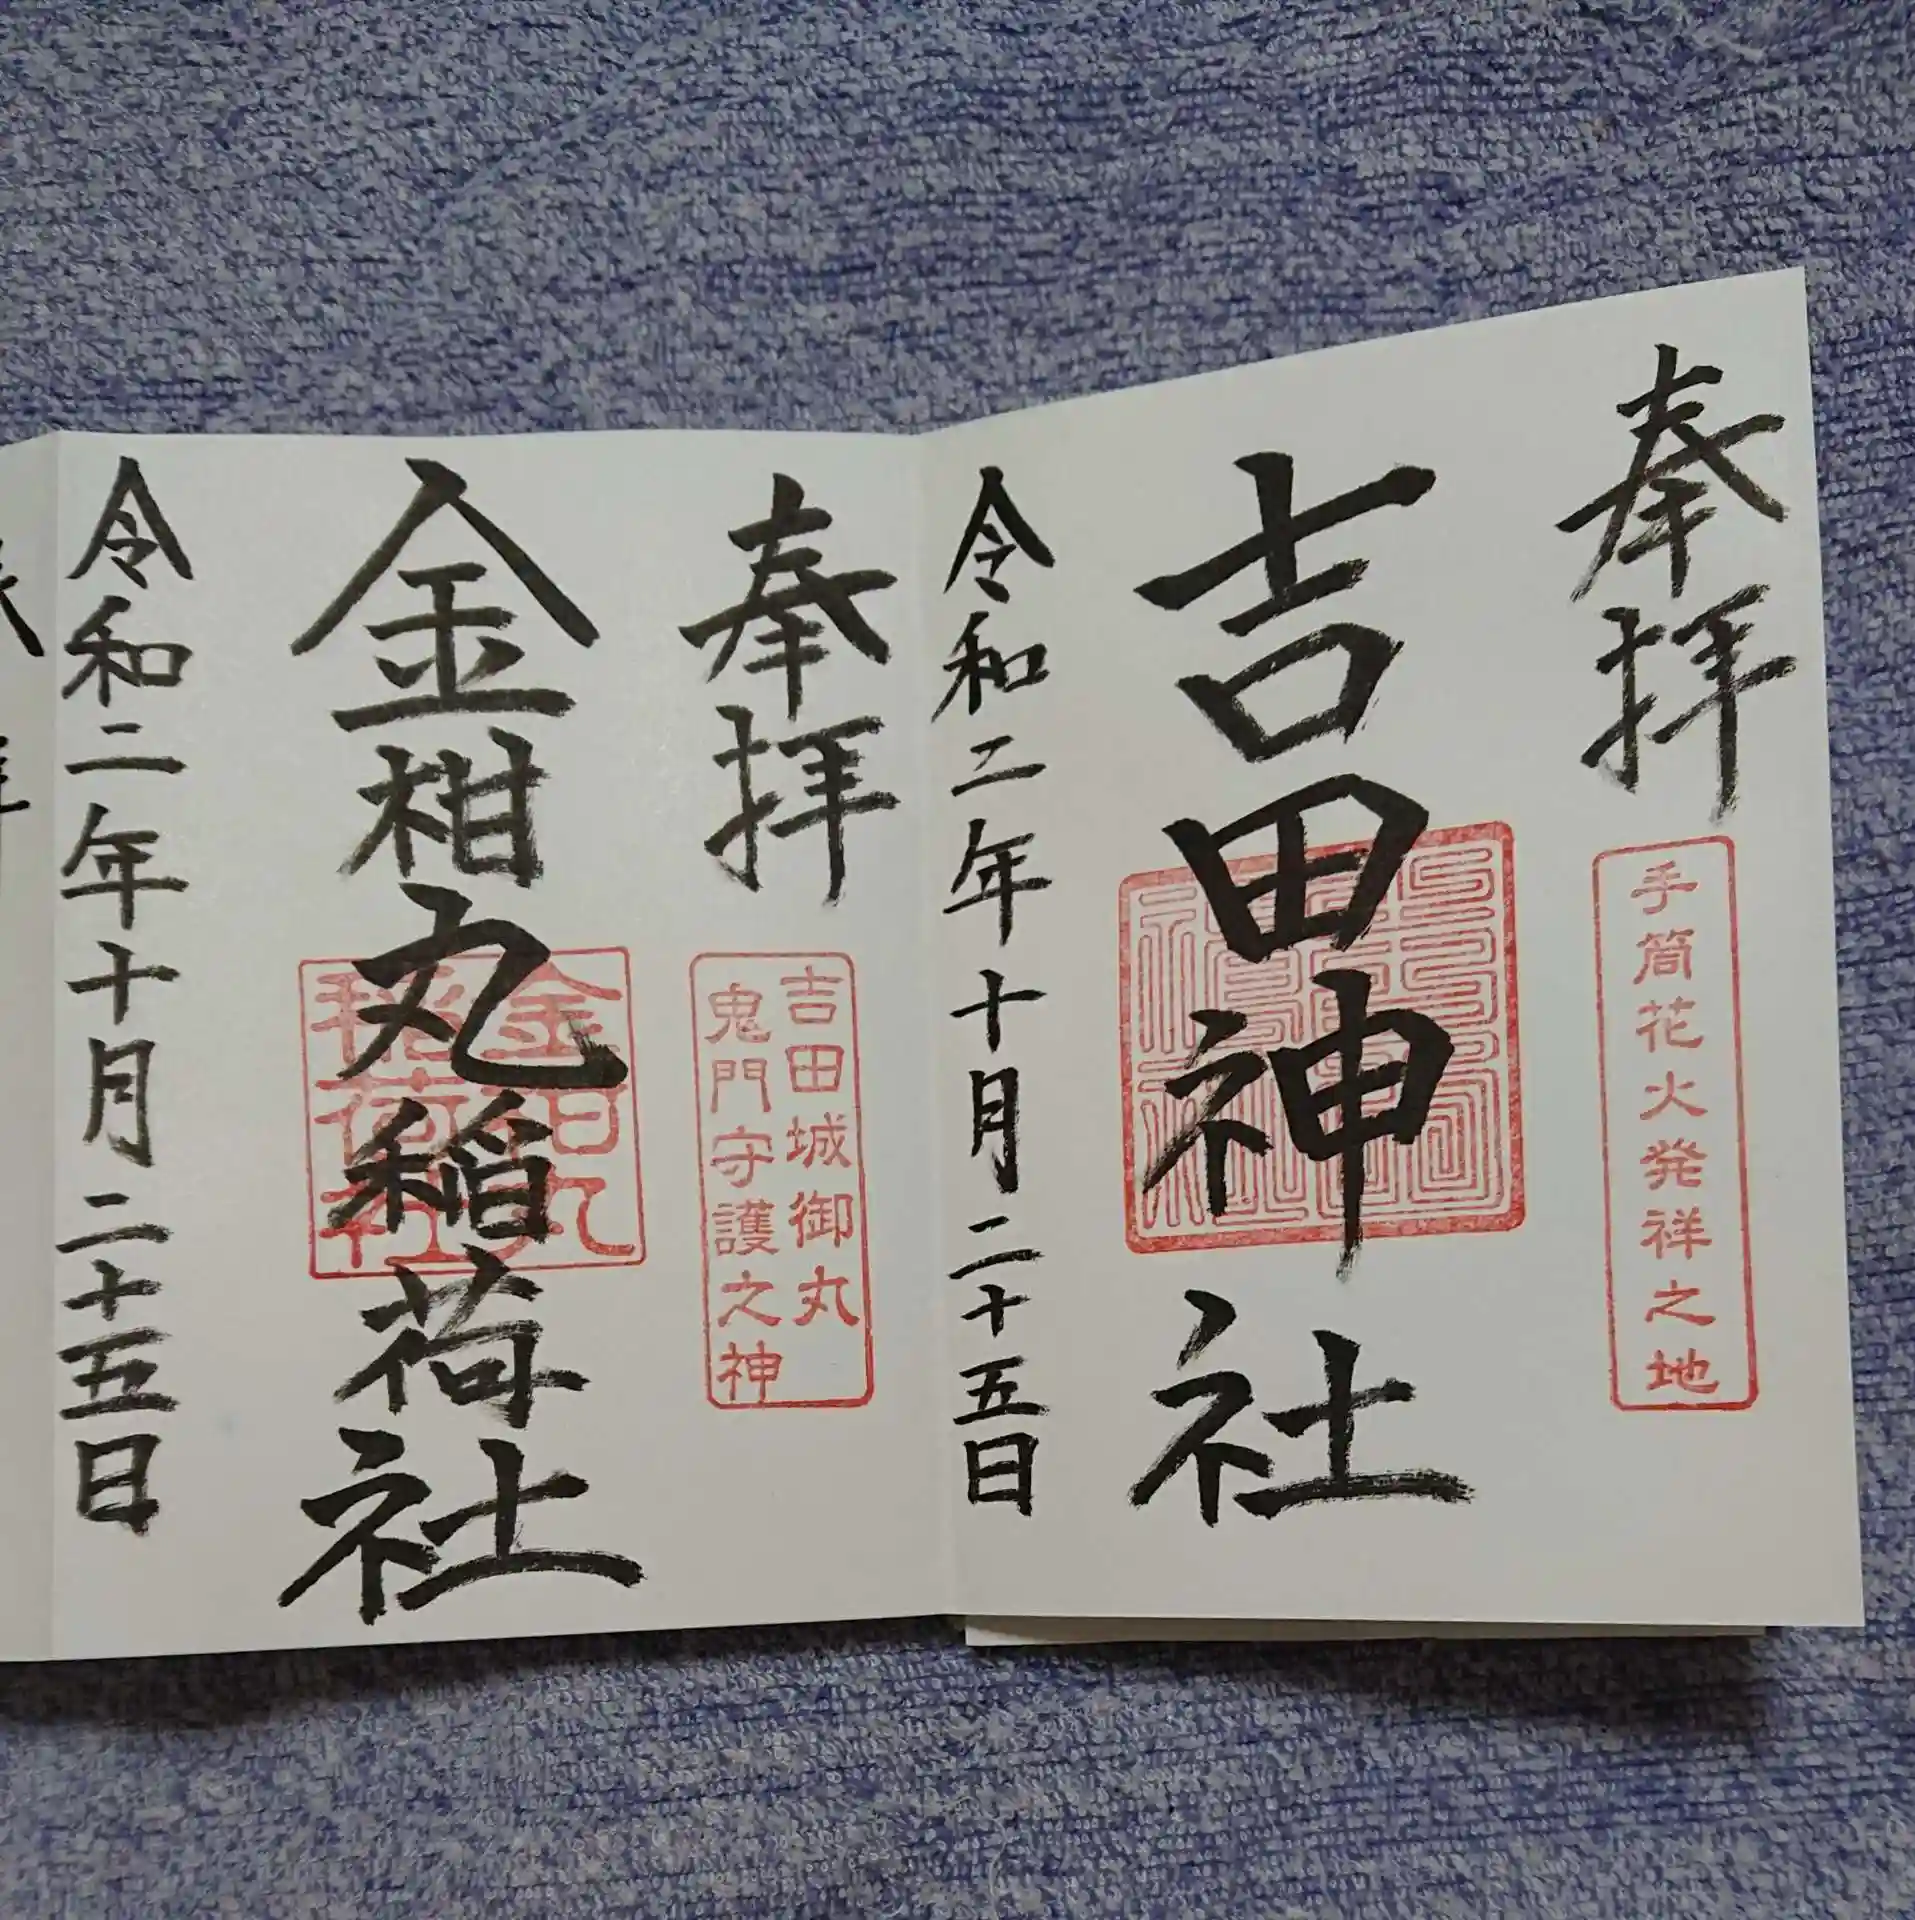 奉拝
手筒花火発祥之地
吉田神社
令和二年十月二十五日
奉拝
吉田城御丸
鬼門守護之神
金柑丸稲荷社
金柑丸
稲荷社
令和二年十月二十五日